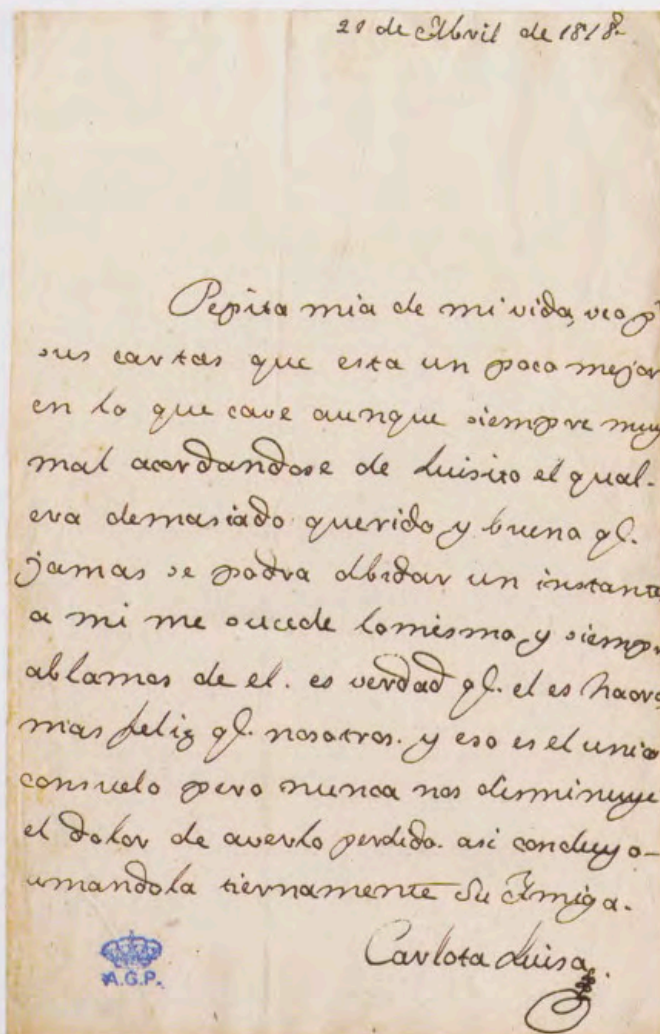 21 de Abril de 1818.
Pepita mia de mi vida, veo pr
sus cartas que esta un poco mejor
en lo que cave aunque siempre muy
mal acordandose de Luisito el qual.
era demasiado querido y bueno ql.
jamas se podra olbidar un instante
a mi me sucede lo mismo y siempr
ablamos de el. es verdad ql. el es haora
mas feliz ql. nosotros. y eso es el unico
consuelo pero nunca nos disminuye
el dolor de averlo perdido. asi concluyo-
amandola tiernamente Su Amiga.
Carlota Luisa.
A.G.P.